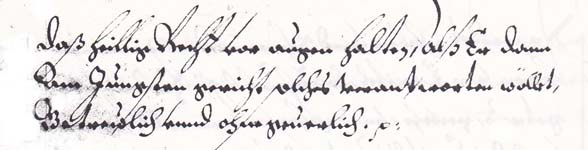 daß heillig Recht vor augen halten, alß Er dann
am Jungsten gericht solches verantwortten wöllet,
Getrewlich unnd ohngeuerlich.